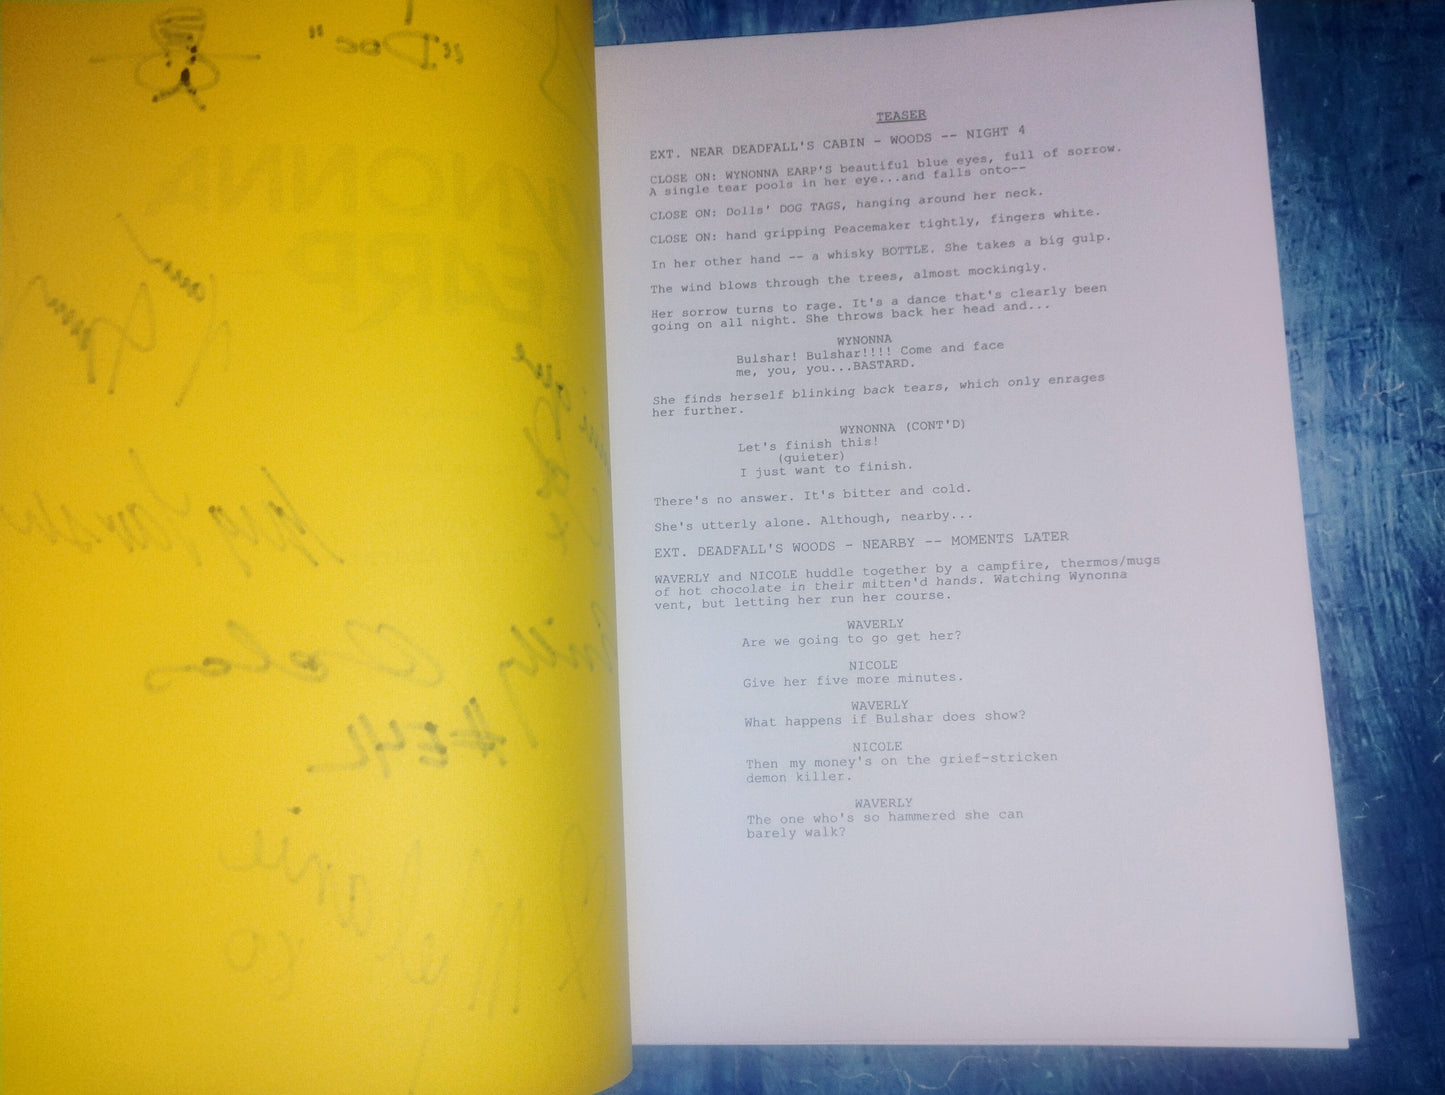 "Doc"
WYNONNA
EARP
#E4L
TEASER
EXT. NEAR DEADFALL'S CABIN - WOODS -- NIGHT 4
CLOSE ON: WYNONNA EARP'S beautiful blue eyes, full of sorrow.
A single tear pools in her eye...and falls onto--
CLOSE ON: Dolls' DOG TAGS, hanging around her neck.
CLOSE ON: hand gripping Peacemaker tightly, fingers white.
In her other hand -- a whisky BOTTLE. She takes a big gulp.
The wind blows through the trees, almost mockingly.
Her sorrow turns to rage. It's a dance that's clearly been
going on all night. She throws back her head and...
WYNONNA
Bulshar! Bulshar!!!! Come and face
me, you, you...BASTARD.
She finds herself blinking back tears, which only enrages
her further.
WYNONNA (CONT'D)
Let's finish this!
(quieter)
I just want to finish.
There's no answer. It's bitter and cold.
She's utterly alone. Although, nearby...
EXT. DEADFALL'S WOODS - NEARBY -- MOMENTS LATER
WAVERLY and NICOLE huddle together by a campfire, thermos/mugs
of hot chocolate in their mitten'd hands. Watching Wynonna
vent, but letting her run her course.
WAVERLY
Are we going to go get her?
NICOLE
Give her five more minutes.
WAVERLY
What happens if Bulshar does show?
NICOLE
Then my money's on the grief-stricken
demon killer.
WAVERLY
The one who's so hammered she can
barely walk?